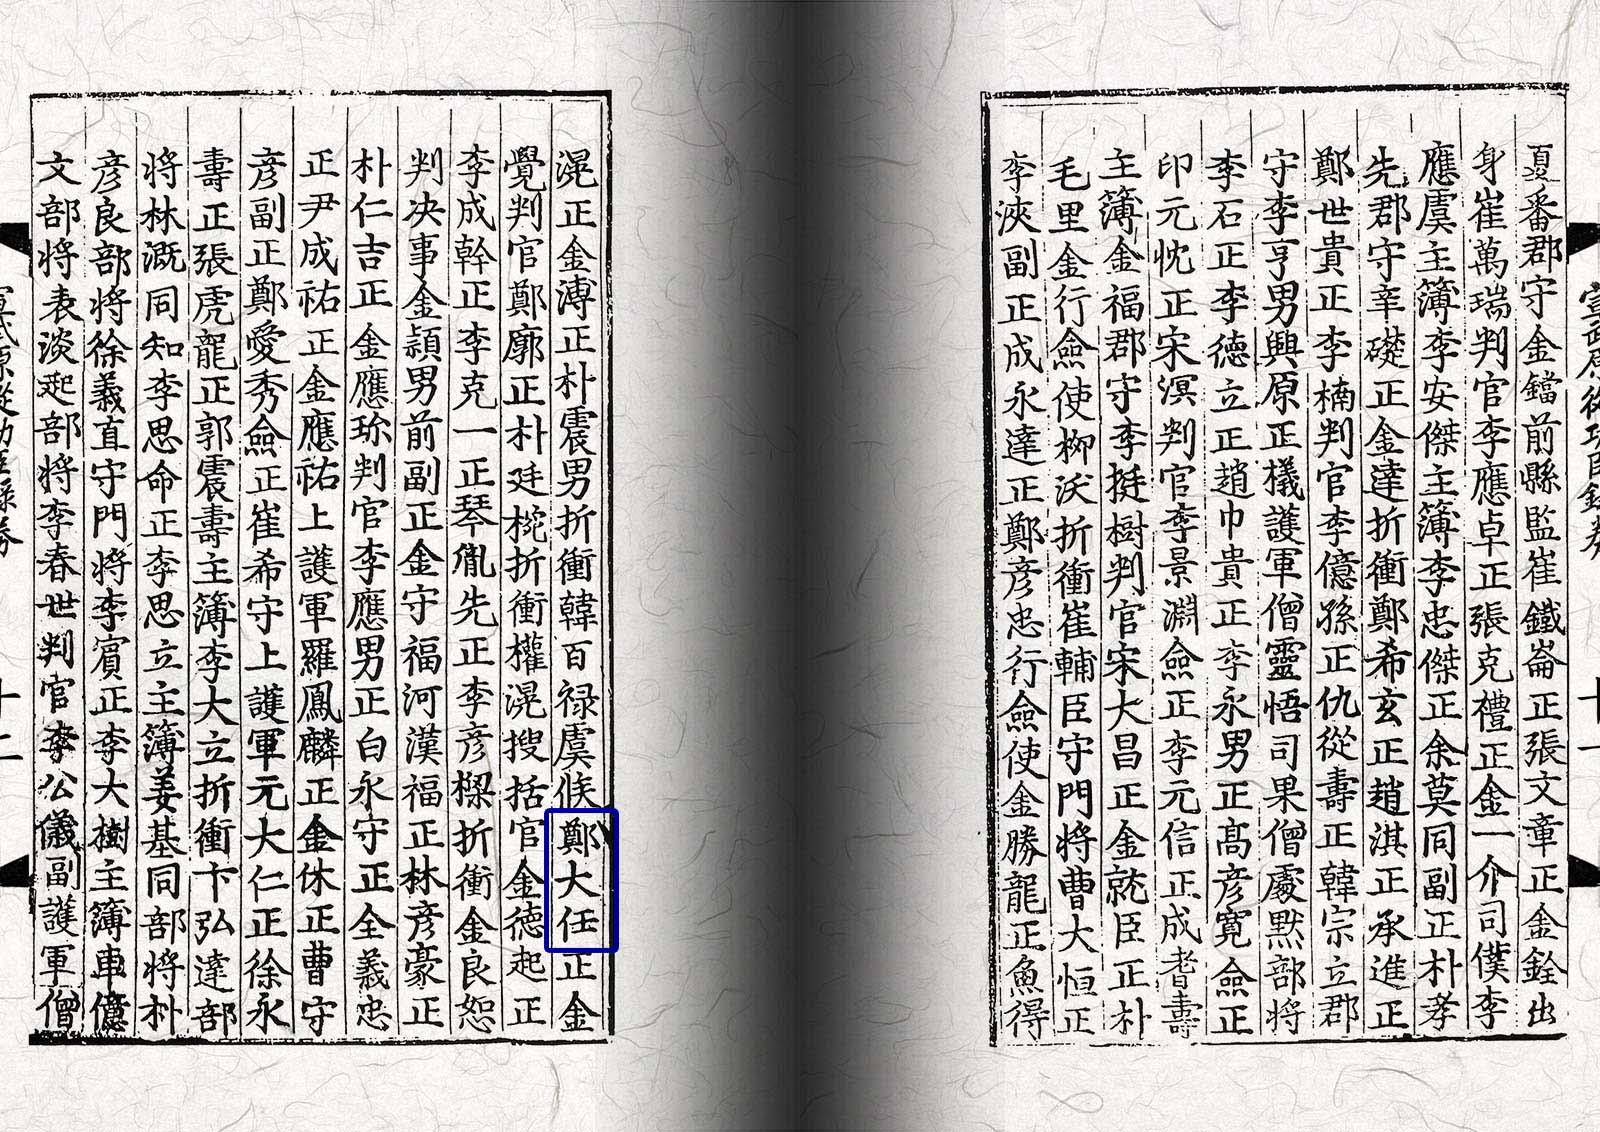 夏番郡守金鐺前縣監崔鐵崙正張文章正金銓出
身崔萬瑞判官李應卓正張克禮正金一介司僕李
應虞主簿李安傑主簿李忠傑正余莫同副正朴孝
先郡守辛礎正金達折衝鄭希玄正趙淇正承進正
鄭世貴正李楠判官李億孫正仇從壽正韓宗立郡
守李亨男興原正檥護軍僧靈悟司果僧處默部將
李石正李德立正趙巾貴正李永男正高彦寬僉正
印元忱正宋溟判官李景淵僉正李元信正成耆壽
主簿金福郡守李挺樹判官宋大昌正金就臣正朴
毛里金行僉使柳沃折衝崔輔臣守門將曹大恒正
李浹副正成永達正鄭彦忠行僉使金勝龍正魚得
滉正金溥正朴震男折衝韓百禄虞候鄭大任正金
覺判官鄭廓正朴廷梡折衝權滉搜括官金德起正
李成幹正李克一正琴胤先正李彦樑折衝金良恕
判决事金潁男前副正金守福河漢福正林彦豪正
朴仁吉正金應珎判官李應男正白永守正全義忠
正尹成祐正金應祐上護軍羅鳳麟正金休正曹守
彦副正鄭愛秀僉正崔希守上護軍元大仁正徐永
壽正張虎龍正郭震壽主簿李大立折衝卞弘達部
將林溉同知李思命正李思立主簿姜基同部將朴
彦良部將徐義直守門將李賓正李大樹主簿車億
文部將表淡起部將李春世判官李公儀副護軍僧